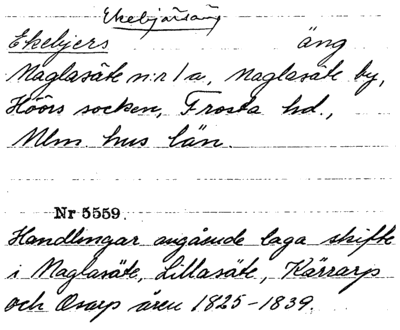 Ekebjärsäng
Ekebjers äng
Maglasäte n:r 1 a, Maglasäte by,
Höörs socken, Frosta hd.,
Mlm. hus län.
Nr 5559.
Handlingar angående laga skifte
i Maglasäte, Lillasäte, Kärrarp
och Osarp åren 1825-1839.